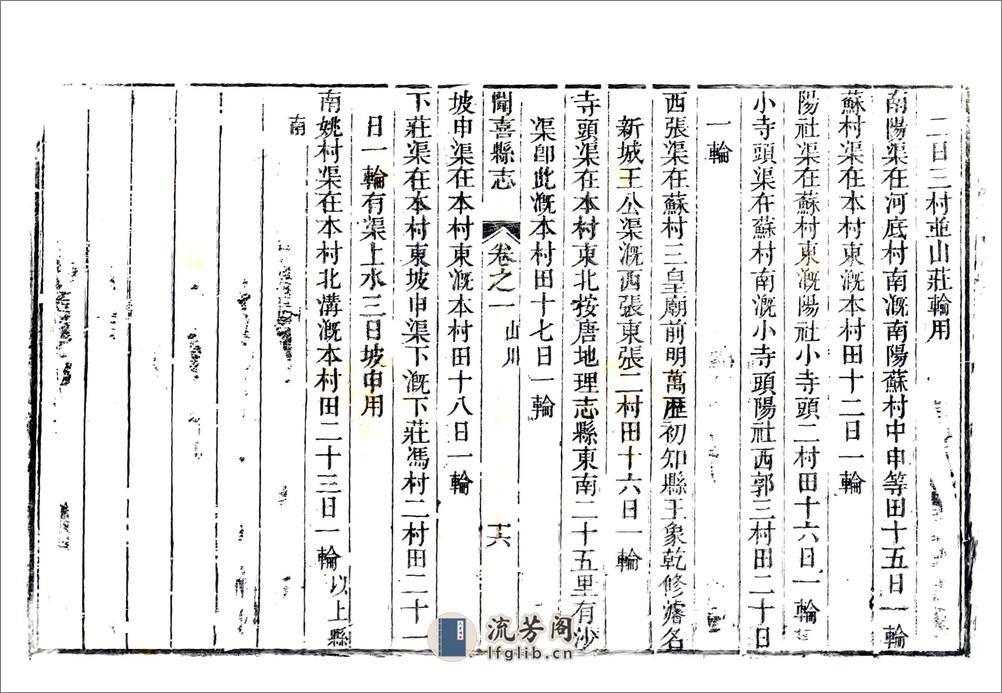 二日三村並山莊輪用
南陽渠在河底村南漑南陽蘇村中申等田十五日一輪
蘇村渠在本村東漑本村田十二日一輪
陽社渠在蘇村東漑陽社小寺頭二村田十六日一輪
小寺頭渠在蘇村南漑小寺頭陽社西郭三村田二十日
一輪
西張渠在蘇村三皇廟前明萬歷初知縣王象乾修濬名
新城王公渠漑西張東張二村田十六日一輪
寺頭渠在本村東北按唐地理志縣東南二十五里有沙
渠卽此漑本村田十七日一輪
聞喜縣志 卷之一 山川 十六
坡申渠在本村東漑本村田十八日一輪
下莊渠在本村東坡申渠下漑下莊馮村二村田二十一
日一輪有渠上水三日坡申用
南姚村渠在本村北溝漑本村田二十三日一輪 以上縣
南
流芳阁
lfglib.cn